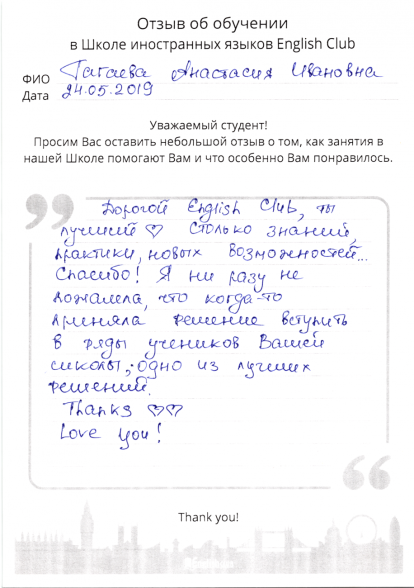 Отзыв об обучении
в Школе иностранных языков English Club
ФИО Гагаева Анастасия Ивановна
Дата 24.05.2019
Уважаемый студент!
Просим Вас оставить небольшой отзыв о том, как занятия в
нашей Школе помогают Вам и что особенно Вам понравилось.
Дорогой English Club, ты
лучший ♡ Столько знаний,
практики, новых возможностей...
Спасибо! Я ни разу не
пожалела, что когда-то
приняла решение вступить
в ряды учеников Вашей
школы, одно из лучших
решений.
Thanks ♡♡
Love you!
Thank you!